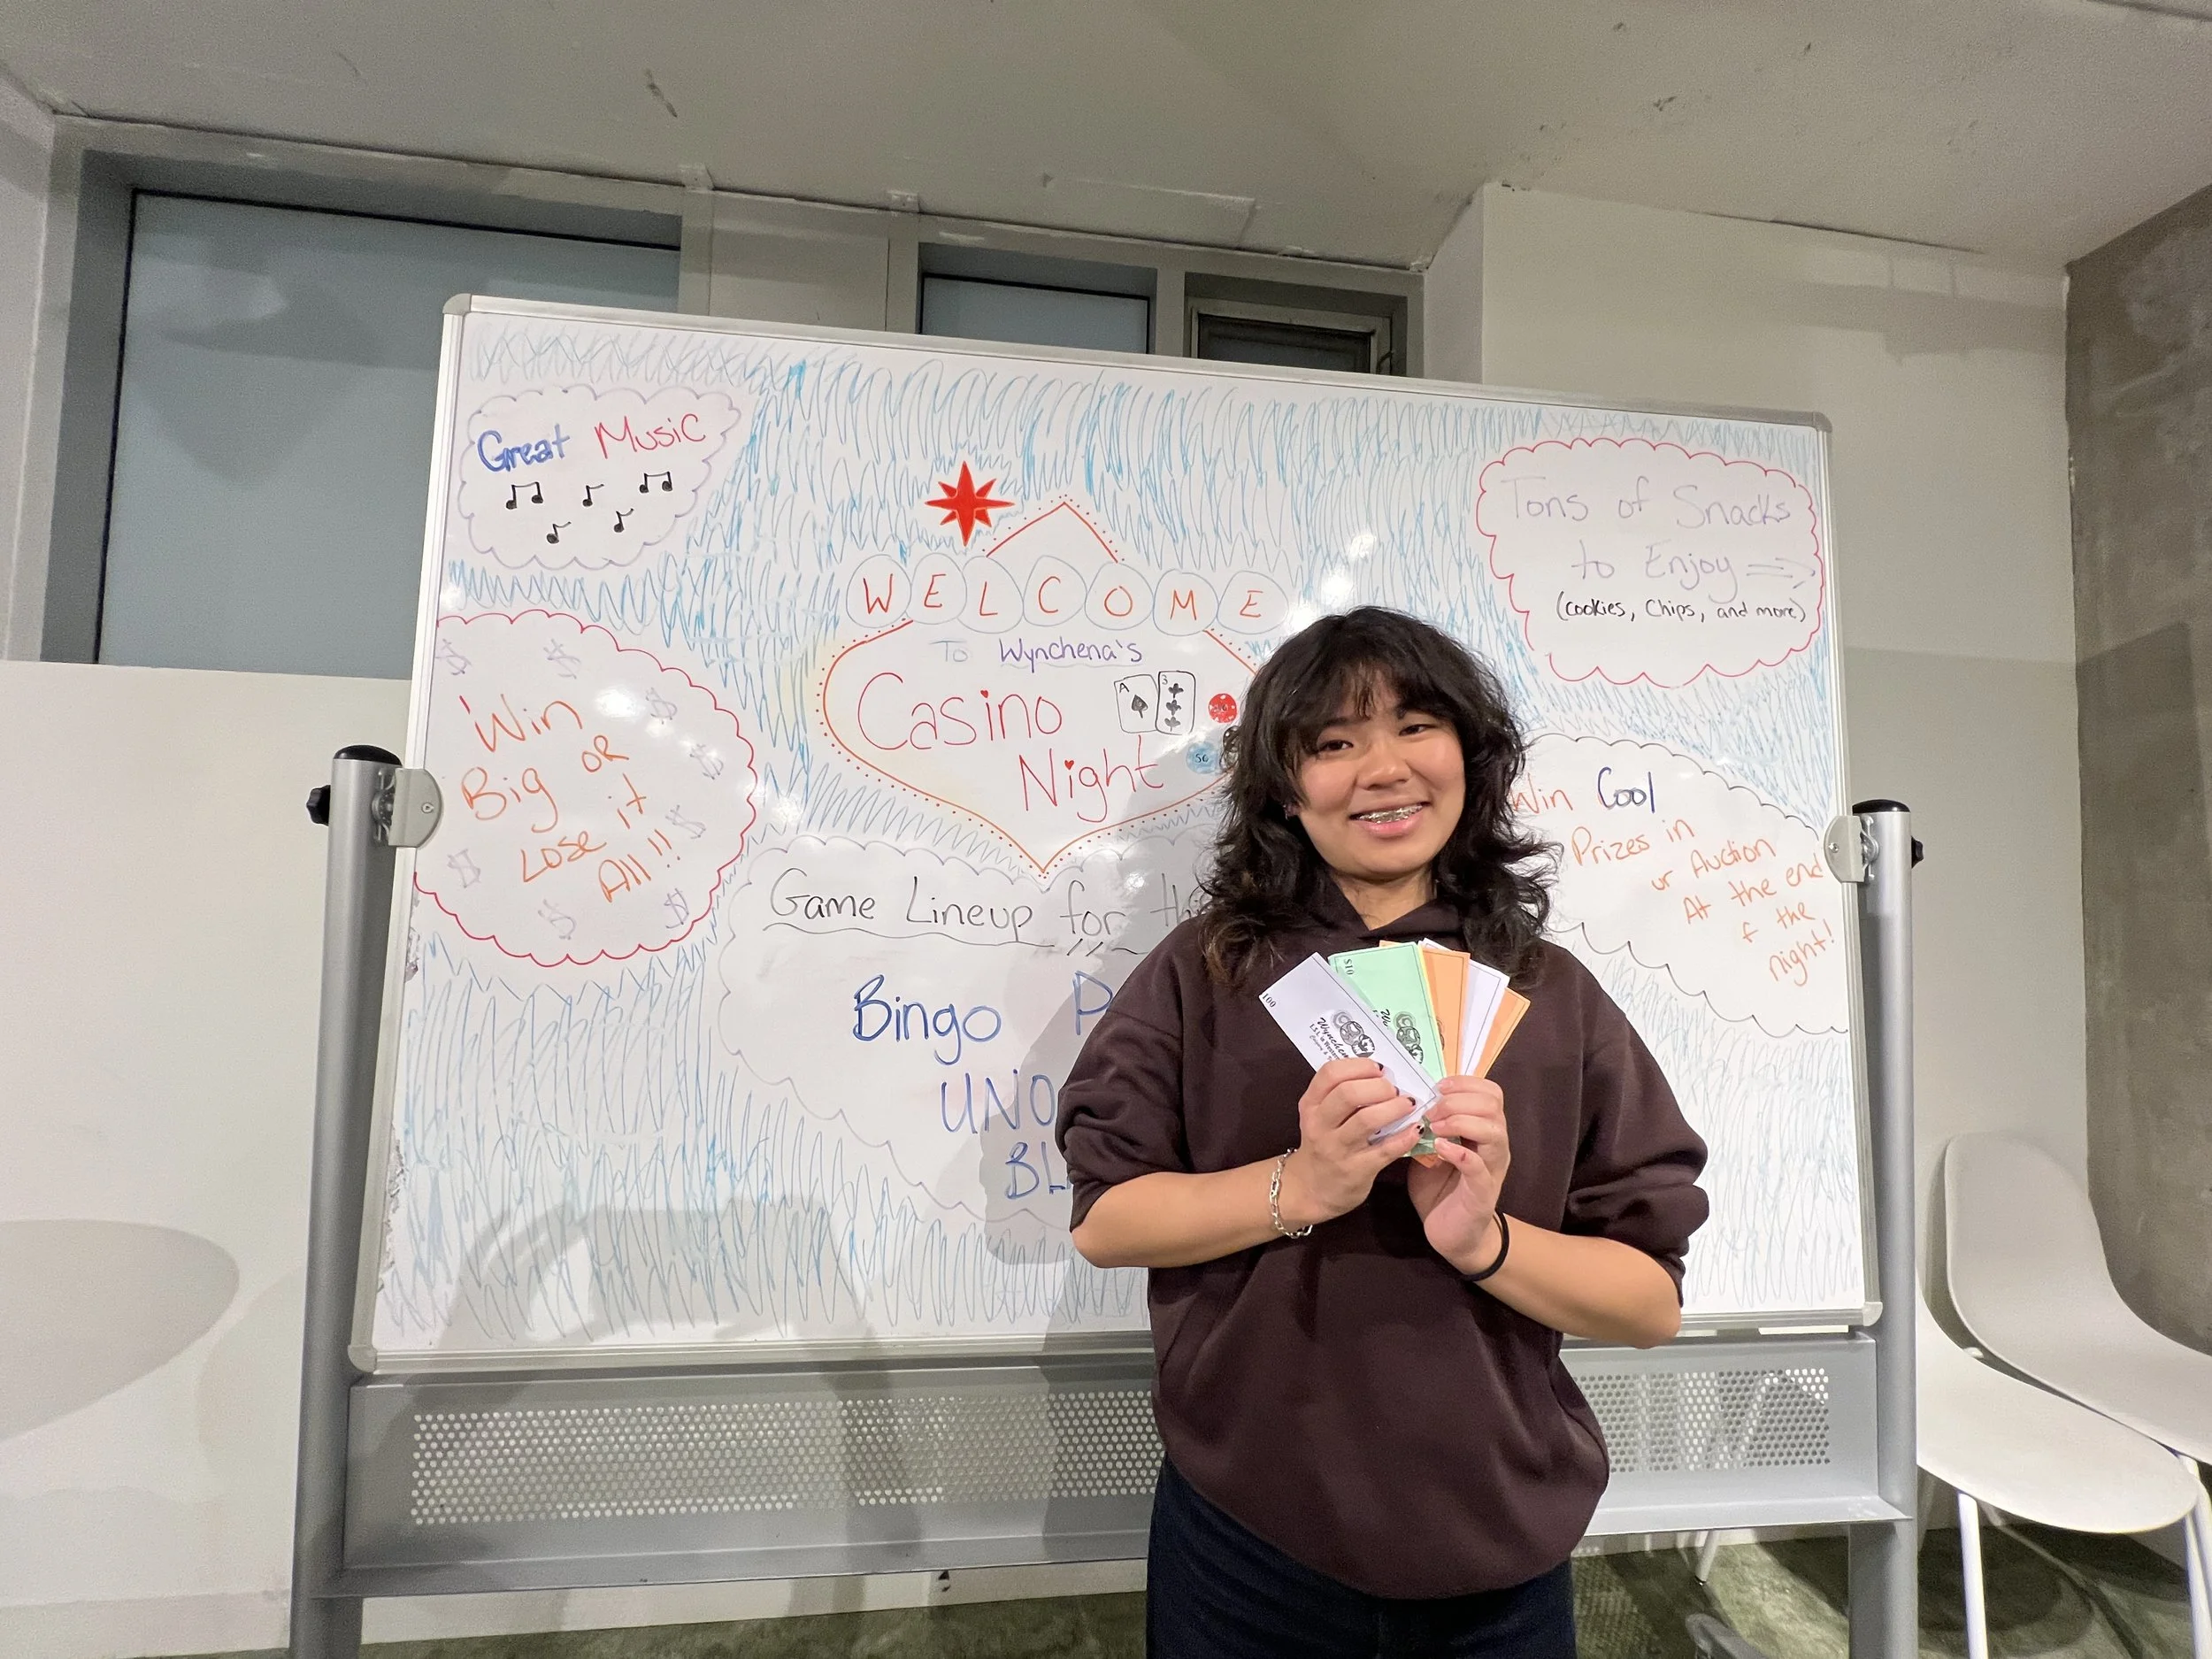 Great Music
WELCOME
To Wynchena's
Casino
Night
A
3
Tons of Snacks
to Enjoy
(cookies, Chips, and more)
Win
Big OR
Lose it
All!!
Game Lineup for
Bingo
UNO
Win Cool
Prizes in
ur Auction
At the end
f the
night!
100
$10